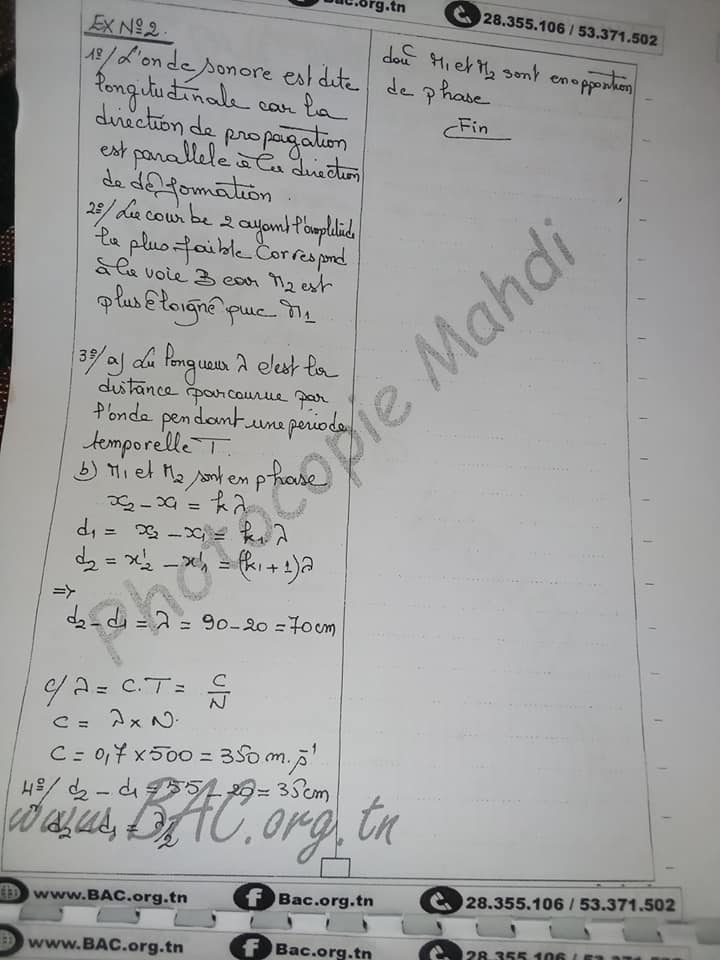 Bac.org.tn
28.355.106 / 53.371.502
EX N°2.
1°/ L'onde sonore est dite
longitudinale car la
direction de propagation
est parallele à la direction
de déformation.
2°/ La courbe 2 ayant l'amplitude
la plus faible correspond
à la voie 3 car M2 est
plus éloigné que M1
3°/ a) La longueur λ c'est la
distance parcourue par
l'onde pendant une période
temporelle T.
b) M1 et M2 sont en phase
x2 - x1 = kλ
d1 = x2 - x1 = k1.λ
d2 = x'2 - x'1 = (k1 + 1)λ
=>
d2 - d1 = λ = 90 - 20 = 70cm
c/ λ = C.T = C/N
C = λ x N.
C = 0,7 x 500 = 350 m.s⁻¹
4°/ d2 - d1 = 55 - 20 = 35cm
d2 - d1 = λ/2
douc M1 et M2 sont en opposition
de phase
Fin
Photocopie Mahdi
www.BAC.org.tn
www.BAC.org.tn
Bac.org.tn
28.355.106 / 53.371.502
www.BAC.org.tn
Bac.org.tn
28.355.106 / 53.371.502